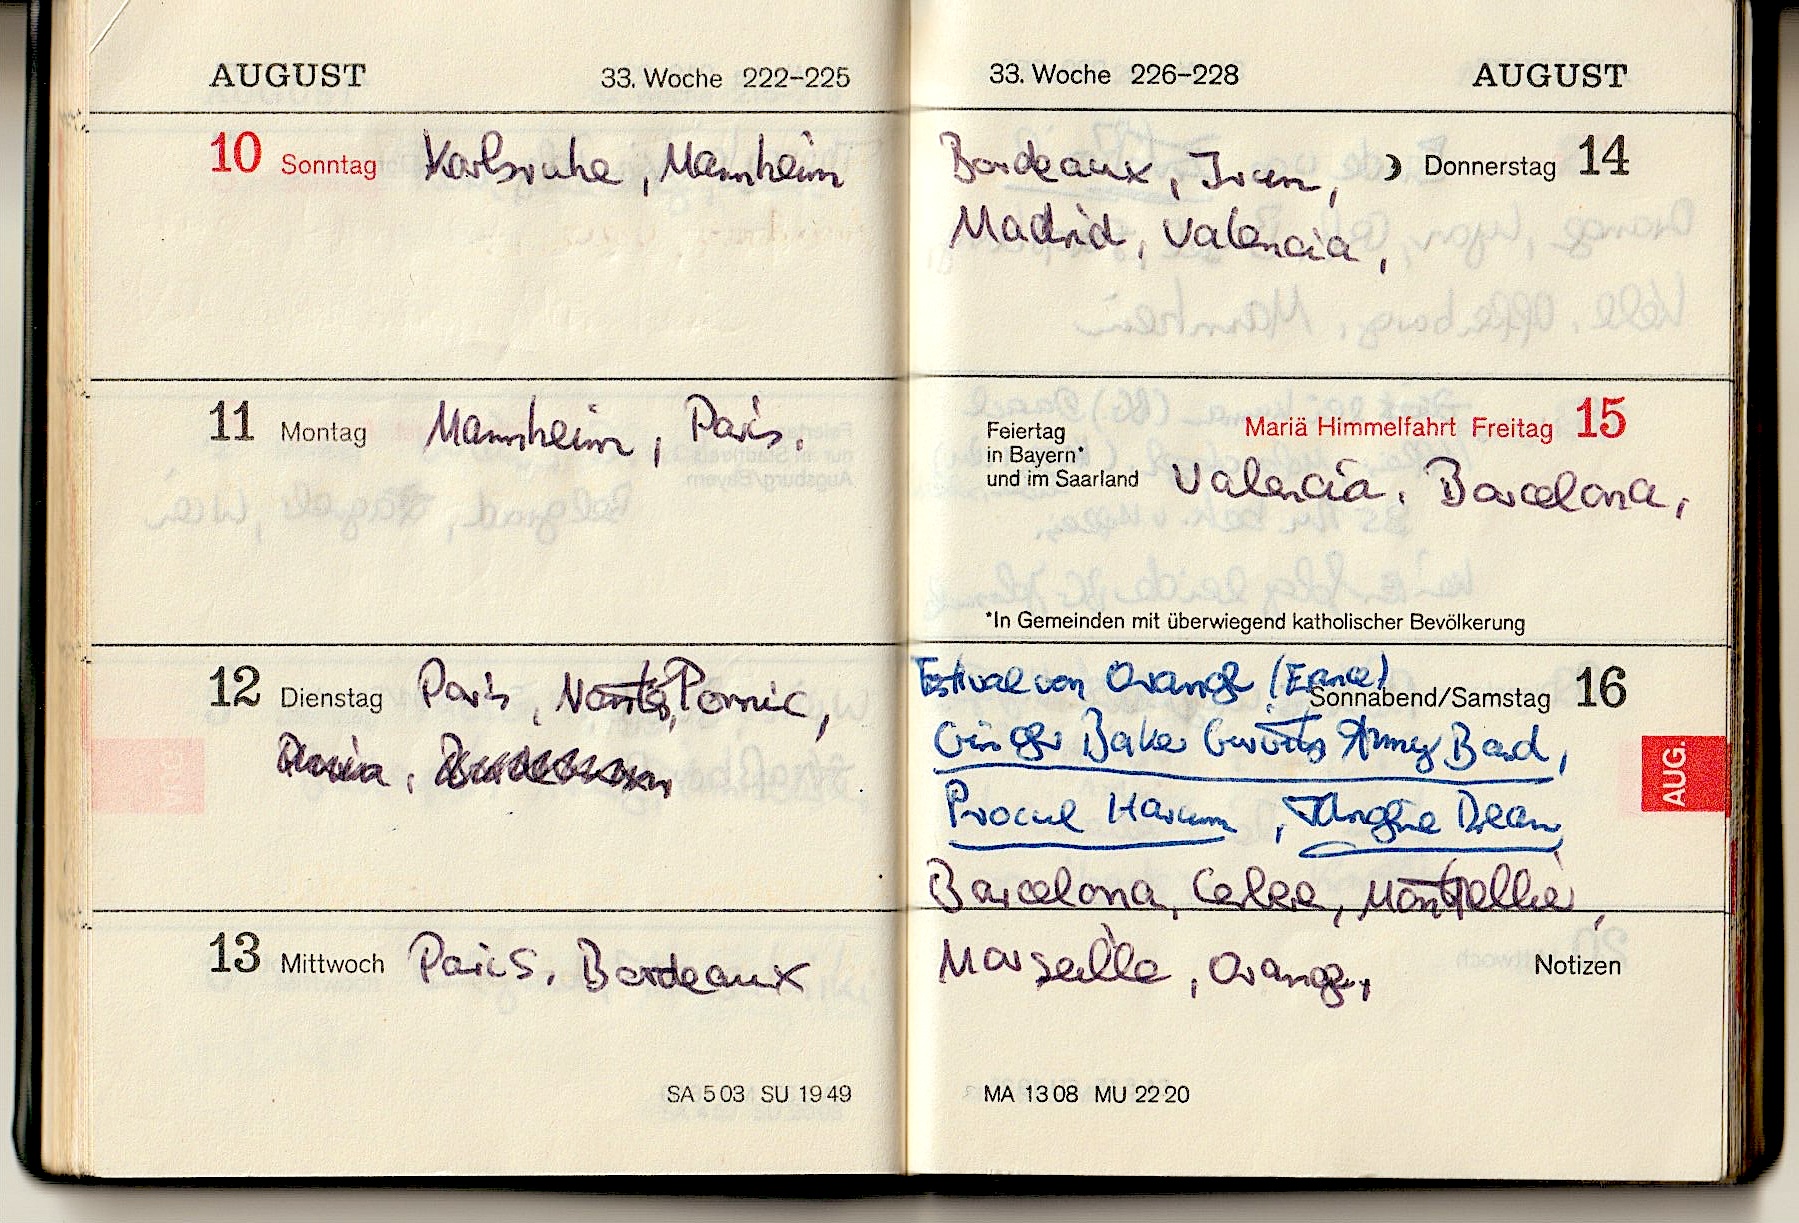 AUGUST 33. Woche 222–225
10 Sonntag Karlsruhe, Mannheim
11 Montag Mannheim, Paris,
12 Dienstag Paris, Nantes, Pornic,
13 Mittwoch Paris, Bordeaux
SA 5 03 SU 19 49
33. Woche 226–228 AUGUST
Bordeaux, Irun, Donnerstag 14
Madrid, Valencia,
Mariä Himmelfahrt Freitag 15
Feiertag
in Bayern*
und im Saarland
Valencia, Barcelona,
*In Gemeinden mit überwiegend katholischer Bevölkerung
Festival von Orange
Sonnabend/Samstag 16
Baker Army Band,
Procul Harum, Tangerine Dream
Barcelona, Montpellier,
AUG.
Marseille, Orange,
Notizen
MA 13 08 MU 22 20